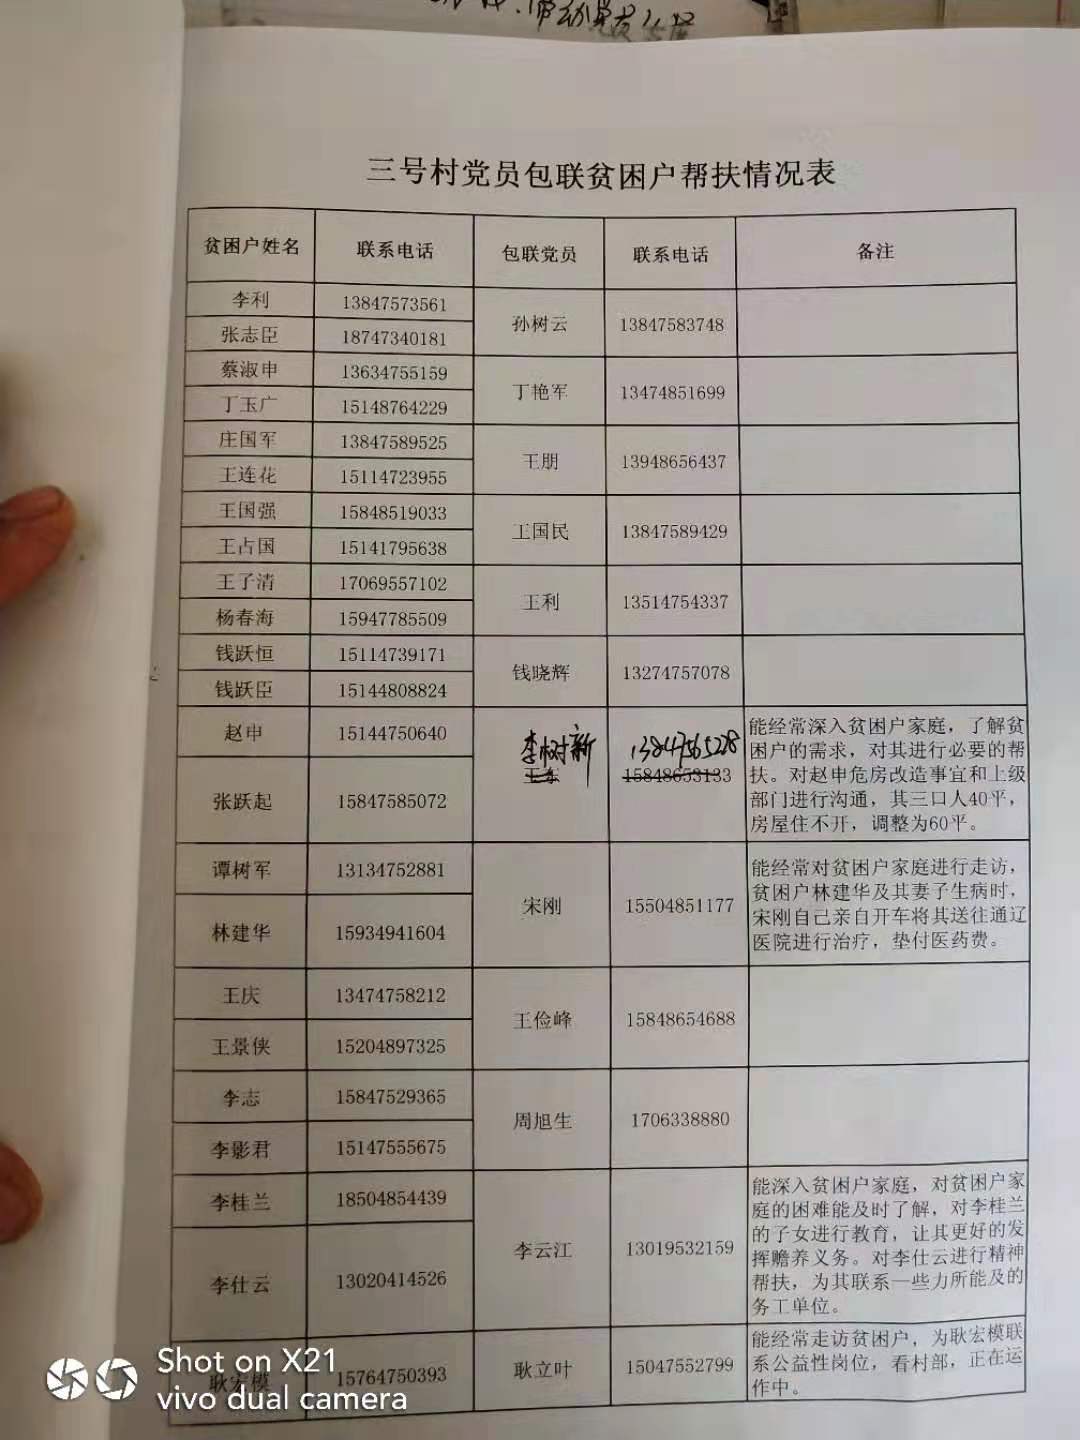 三号村党员包联贫困户帮扶情况表
贫困户姓名 联系电话 包联党员 联系电话 备注
李利 13847573561 孙树云 13847583748
张志臣 18747340181
蔡淑申 13634755159 丁艳军 13474851699
丁玉广 15148764229
庄国军 13847589525 王朋 13948656437
王连花 15114723955
王国强 15848519033 王国民 13847589429
王占国 15141795638
王子清 17069557102 王利 13514754337
杨春海 15947785509
钱跃恒 15114739171 钱晓辉 13274757078
钱跃臣 15144808824
赵申 15144750640 李树新 13847565228
15848653133
张跃起 15847585072
能经常深入贫困户家庭，了解贫
困户的需求，对其进行必要的帮
扶。对赵申危房改造事宜和上级
部门进行沟通，其三口人40平，
房屋住不开，调整为60平。
谭树军 13134752881 宋刚 15504851177
林建华 15934941604
能经常对贫困户家庭进行走访，
贫困户林建华及其妻子生病时，
宋刚自己亲自开车将其送往通辽
医院进行治疗，垫付医药费。
王庆 13474758212 王俭峰 15848654688
王景侠 15204897325
李志 15847529365 周旭生 1706338880
李影君 15147555675
李桂兰 18504854439 李云江 13019532159
李仕云 13020414526
能深入贫困户家庭，对贫困户家
庭的困难能及时了解，对李桂兰
的子女进行教育，让其更好的发
挥赡养义务。对李仕云进行精神
帮扶，为其联系一些力所能及的
务工单位。
耿宏模 15764750393 耿立叶 15047552799
能经常走访贫困户，为耿宏模联
系公益性岗位，看村部，正在运
作中。
Shot on X21
vivo dual camera